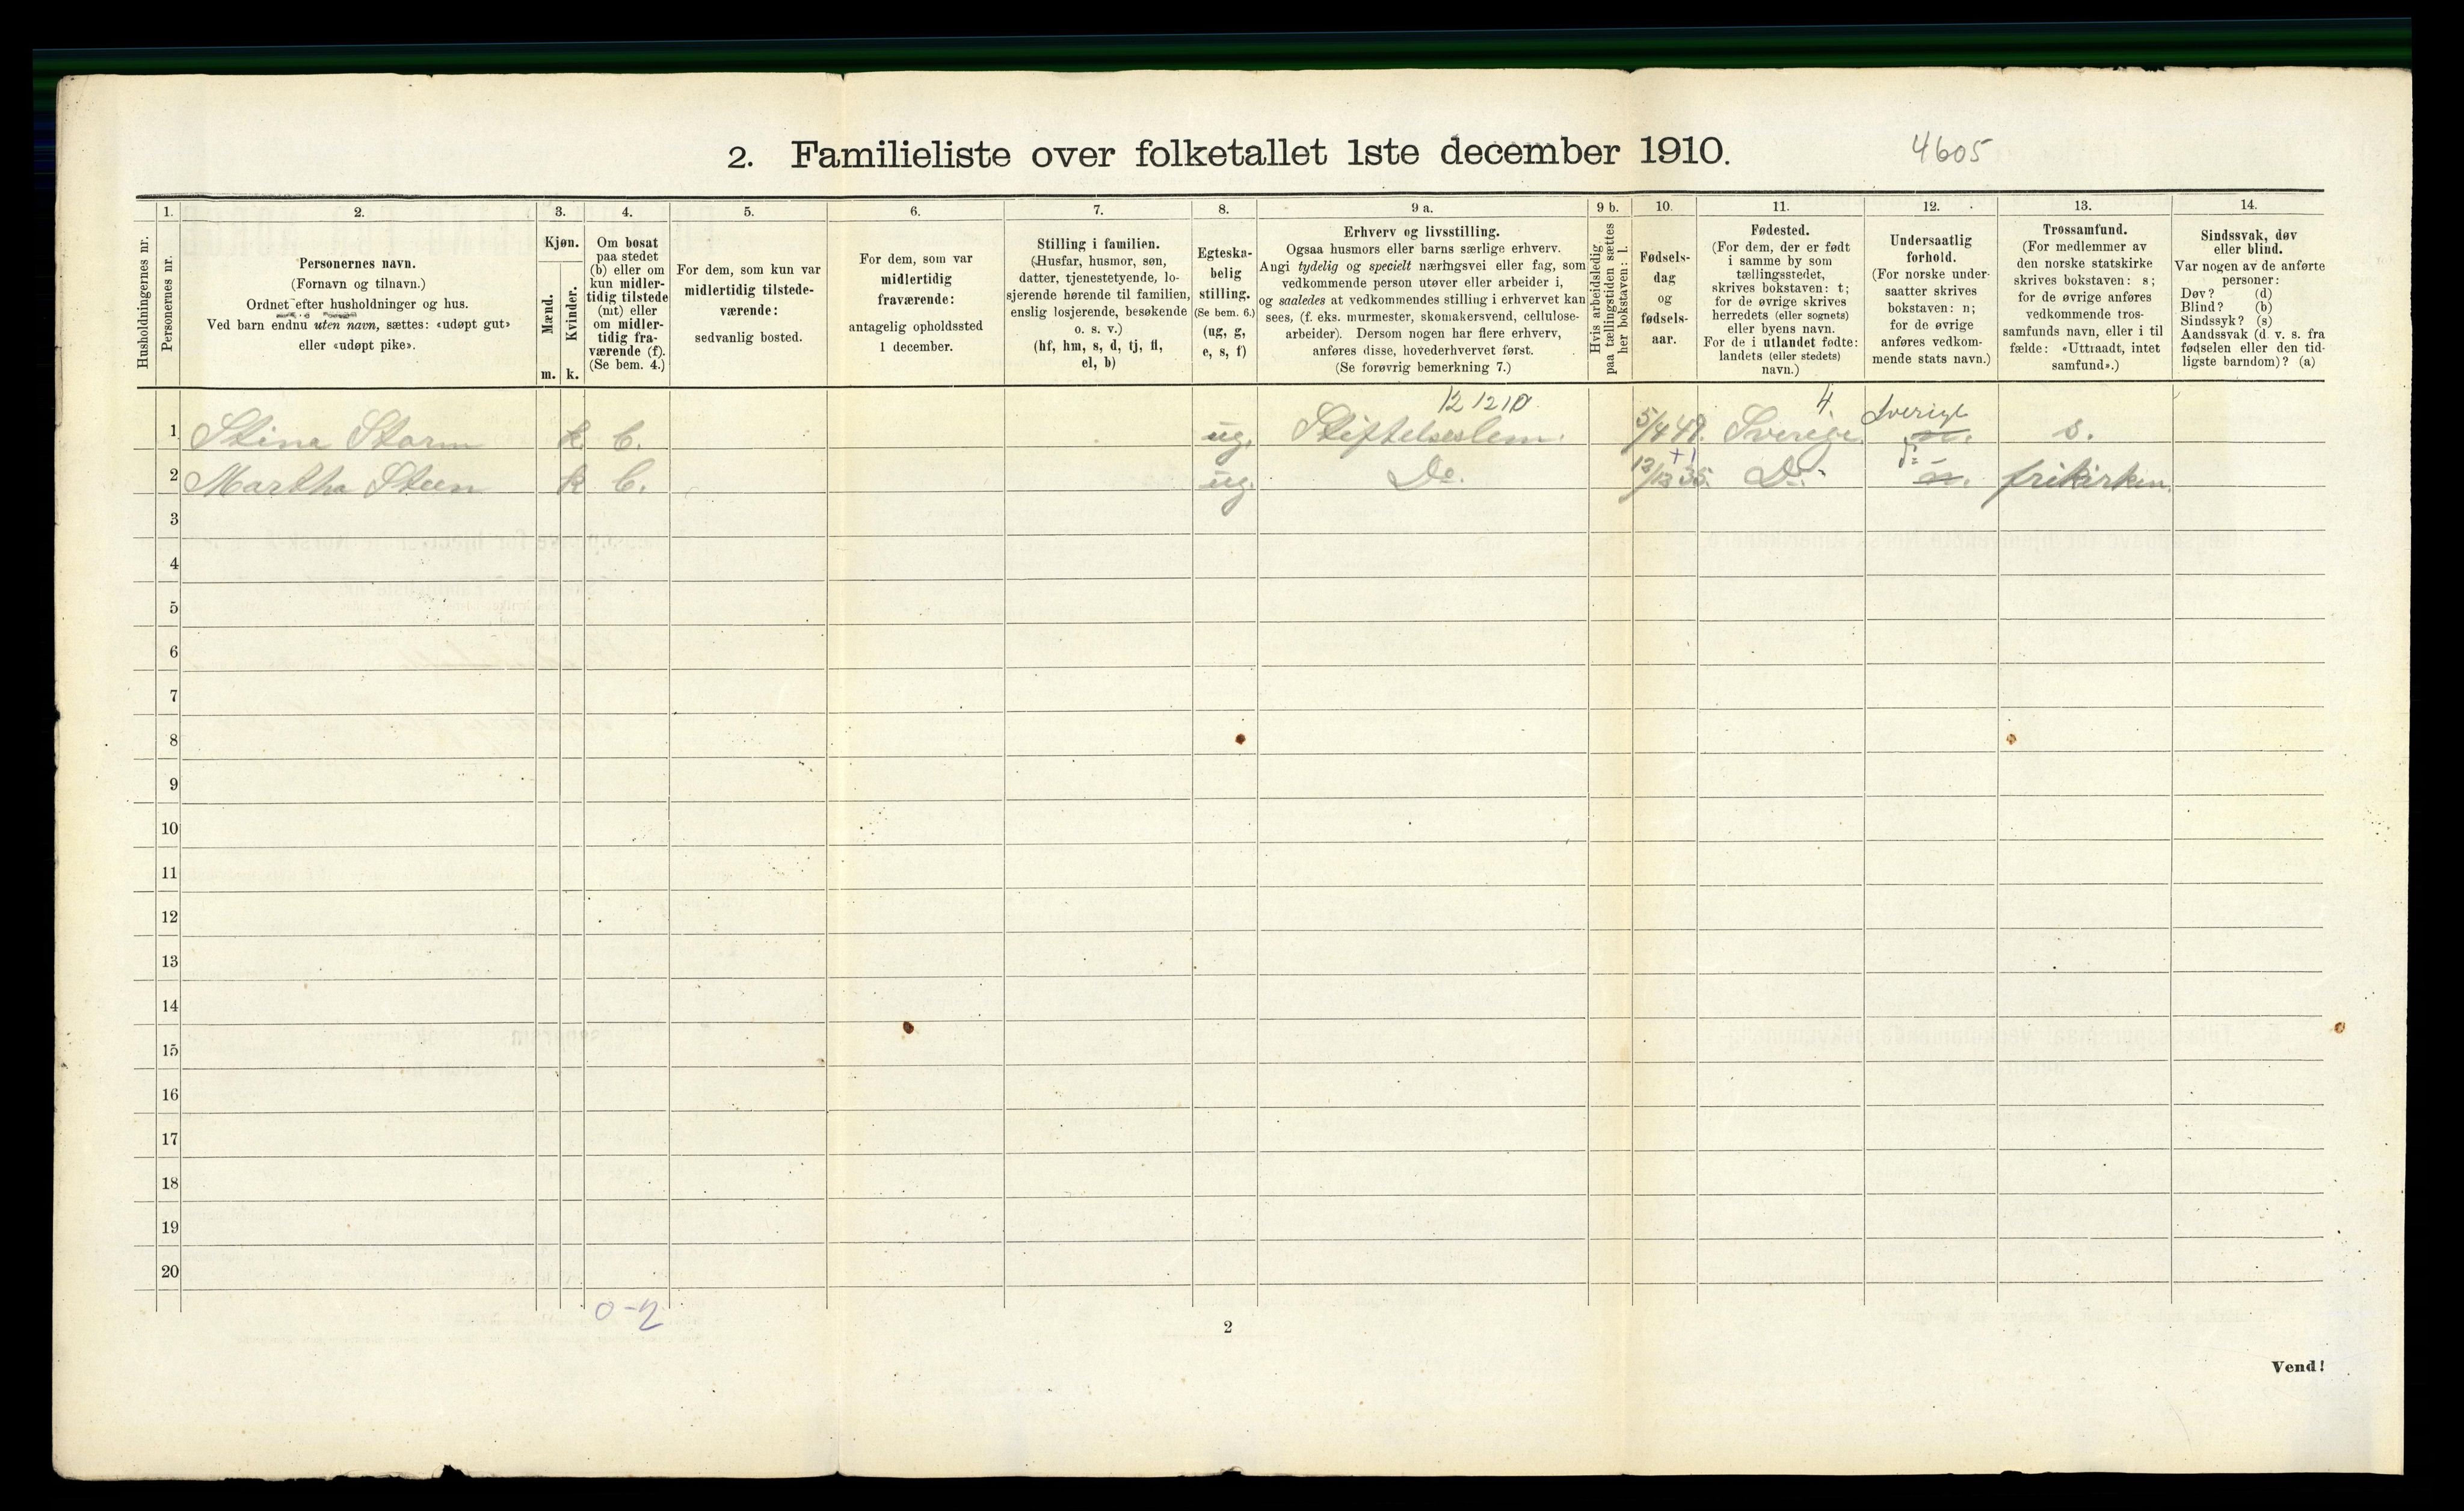 2. Familieliste over folketallet 1ste december 1910.
4605
Husholdningernes nr.
1.
Personernes nr.
2.
Personernes navn.
(Fornavn og tilnavn.)
Ordnet efter husholdninger og hus.
Ved barn endnu uten navn, sættes: «udøpt gut»
eller «udøpt pike».
3.
Kjøn.
Mænd.
Kvinder.
m.
k.
4.
Om bosat
paa stedet
(b) eller om
kun midler-
tidig tilstede
(mt) eller
om midler-
tidig fra-
værende (f).
(Se bem. 4.)
5.
For dem, som kun var
midlertidig tilstede-
værende:
sedvanlig bosted.
6.
For dem, som var
midlertidig
fraværende:
antagelig opholdssted
1 december.
7.
Stilling i familien.
(Husfar, husmor, søn,
datter, tjenestetyende, lo-
sjerende hørende til familien,
enslig losjerende, besøkende
o. s. v.)
(hf, hm, s, d, tj, fl,
el, b)
8.
Egteska-
belig
stilling.
(Se bem. 6.)
(ug, g,
e, s, f)
9 a.
Erhverv og livsstilling.
Ogsaa husmors eller barns særlige erhverv.
Angi tydelig og specielt næringsvei eller fag, som
vedkommende person utøver eller arbeider i,
og saaledes at vedkommendes stilling i erhvervet kan
sees, (f. eks. murmester, skomakersvend, cellulose-
arbeider). Dersom nogen har flere erhverv,
anføres disse, hovederhvervet først.
(Se forøvrig bemerkning 7.)
9 b.
Hvis arbeidsledig
paa tællingstiden sættes
her bokstaven: l.
10.
Fødsels-
dag
og
fødsels-
aar.
11.
Fødested.
(For dem, der er født
i samme by som
tællingsstedet,
skrives bokstaven: t;
for de øvrige skrives
herredets (eller sognets)
eller byens navn.
For de i utlandet fødte:
landets (eller stedets)
navn.)
12.
Undersaatlig
forhold.
(For norske under-
saatter skrives
bokstaven: n;
for de øvrige
anføres vedkom-
mende stats navn.)
13.
Trossamfund.
(For medlemmer av
den norske statskirke
skrives bokstaven: s;
for de øvrige anføres
vedkommende tros-
samfunds navn, eller i til
fælde: «Uttraadt, intet
samfund».)
14.
Sindssvak, døv
eller blind.
Var nogen av de anførte
personer:
Døv? (d)
Blind? (b)
Sindssyk? (s)
Aandssvak (d. v. s. fra
fødselen eller den tid-
ligste barndom)? (a)
12 12 10 4. Sverige
1 Stina Storm k b. ug. Stiftelseslem. 5/4 48. Sverige. n. s.
+1 do
2 Martha Steen k b. ug. Do. 12/12 35. Do. n. frikirken.
3
4
5
6
7
8
9
10
11
12
13
14
15
16
17
18
19
20
0-2
2
Vend!